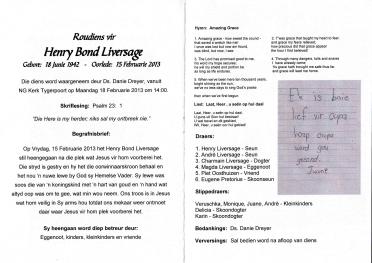 Roudiens vir
Henry Bond Liversage
Gebore: 18 Junie 1942 - Oorlede: 15 Februarie 2013
Die diens word waargeneem deur Ds. Danie Dreyer, vanuit
NG Kerk Tygerpoort op Maandag 18 Februarie 2013 om 14:00.
Skriflesing: Psalm 23: 1
"Die Here is my herder; niks sal my ontbreek nie."
Begrafnisbrief:
Op Vrydag, 15 Februarie 2013 het Henry Bond Liversage
stil heengegaan na die plek wat Jesus vir hom voorberei het.
Die stryd is gestry en hy het die oorwinnaarskroon behaal en
het nou 'n nuwe lewe by God sy Hemelse Vader. Sy lewe was
soos die van 'n koningskind met 'n hart van goud en 'n hand wat
altyd oop was om te gee, wat min wou neem. Ons troos is in Jesus
wat hom veilig in Sy arms hou totdat ons mekaar weer ontmoet
daar waar Jesus vir hom plek voorberei het.
Sy heengaan word diep betreur deur:
Eggenoot, kinders, kleinkinders en vriende
Hymn: Amazing Grace
1. Amazing grace - how sweet the sound -
that saved a wretch like me!
I once was lost but now am found,
was blind, but now I see.
2. T'was grace that taught my heart to feel
and grace my fears relieved;
how precious did that grace appear
the hour I first believed!
3. The Lord has promised good to me,
his word my hope secures;
he will my shield and portion be
as long as life endures.
4. Through many dangers, toils and snares
I have already come;
'tis grace hath brought me safe thus far
and grace will lead me home.
5. When we've been here ten thousand years,
bright shining as the sun,
we've no less days to sing God's praise
than when we've first begun.
Lied: Laat, Heer, u seën op hul daal
Laat, Heer, u seën op hul daal
Draers:
1. Henry Liversage - Seun
2. André Liversage - Seun
3. Charmain Liversage - Dogter
4. Magda Liversage - Eggenoot
5. Piet Oosthuizen - Vriend
6. Eugene Pretorius - Skoonseun
Slippedraers:
Veruschka, Monique, Juane, André - Kleinkinders
Delicia - Skoondogter
Karin - Skoondogter
Bedanking: Ds. Danie Dreyer
Verversings: Sal bedien word na afloop van diens
Ek is baie
lief vir Oupa
hoop oupa
word gou
gesond.